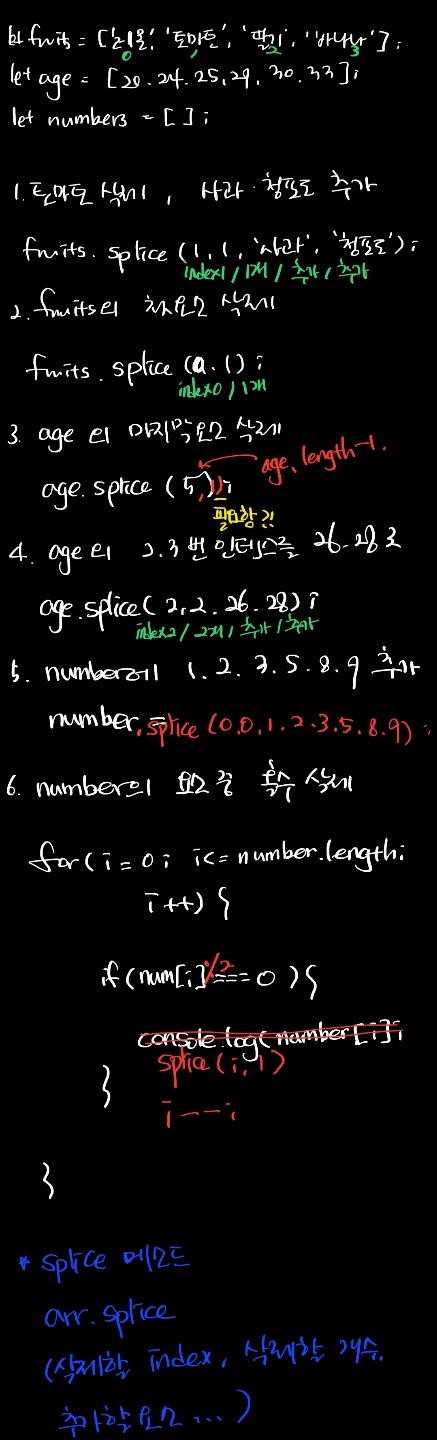 let fruits = ['레몬', '토마토', '딸기', '바나나'];
0 1 2 3
let age = [20. 24. 25, 29, 30. 33];
let numbers = [ ];
1. 토마토 삭제 , 사과 · 청포도 추가
fruits. splice (1, 1, '사과', '청포도');
index1 / 1개 / 추가 / 추가
2. fruits의 첫요소 삭제
fruits. splice (0. 1);
index0 / 1개
3. age 의 마지막요소 삭제
age. length-1.
age. splice ( 5, 1);
필요함?!
4. age의 2.3번 인덱스를 26. 28로
age.splice( 2, 2. 26. 28) ;
index2 / 2개 / 추가 / 추가
5. number에 1. 2. 3. 5. 8. 9 추가
number.splice (0.0.1.2.3.5.8.9) ;
6. number의 요소 중 짝수 삭제
for( i = 0; i <= number.length;
i ++) {
if (num[i]%2 === 0 ) {
console.log(number[i];
splice (i, 1)
i--;
}
}
* splice 메소드
arr. splice
(삭제할 index, 삭제할 개수,
추가할 요소 ... )